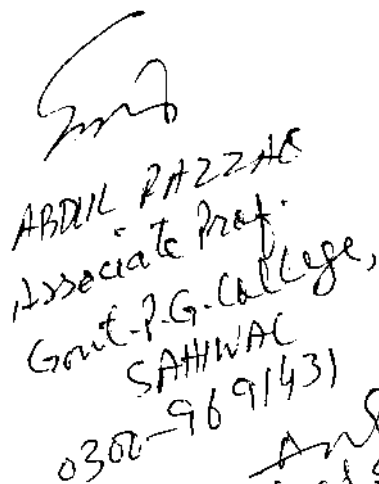 ABDUL RAZZAQ
Associate Prof.
Govt. P.G. College,
SAHIWAL
0300-9691431